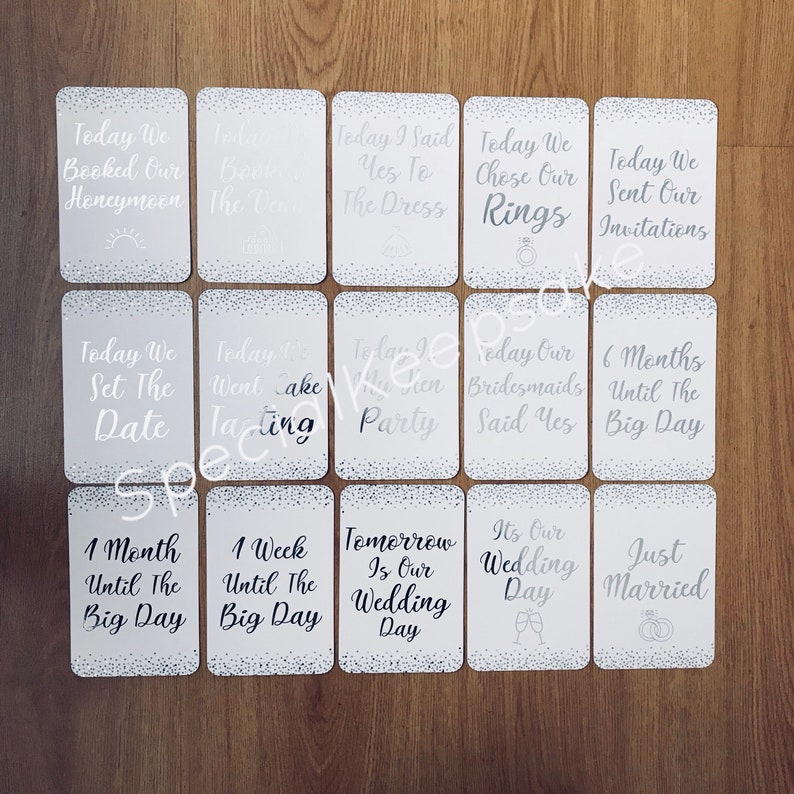 Today We
Booked Our
Honeymoon
Today We
Booked
The Venue
Today I Said
Yes To
The Dress
Today We
Chose Our
Rings
Today We
Sent Our
Invitations
Today We
Set The
Date
Today We
Went Cake
Tasting
Today I
My Hen
Party
Today Our
Bridesmaids
Said Yes
6 Months
Until The
Big Day
1 Month
Until The
Big Day
1 Week
Until The
Big Day
Tomorrow
Is Our
Wedding
Day
Its Our
Wedding
Day
Just
Married
Specialkeepsake